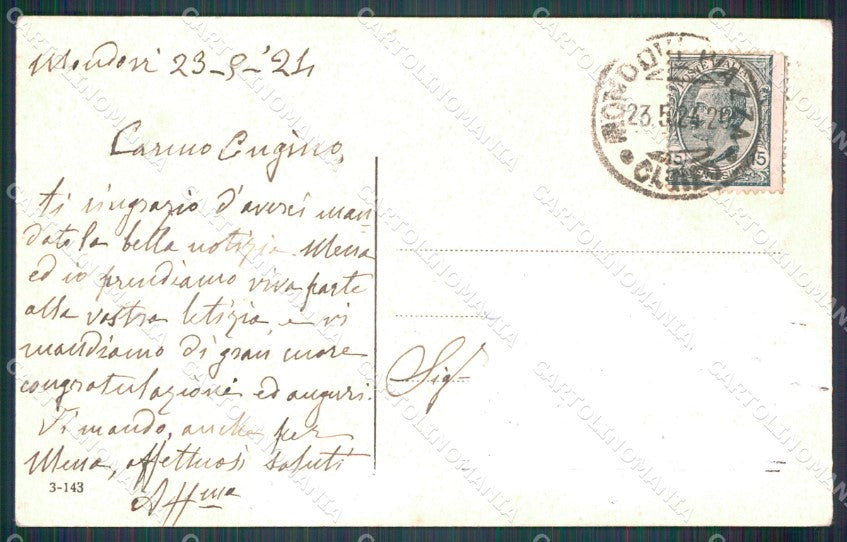 Mondovì 23-5-'24
Carmo Cugino,
ti ringrazio d'averci man
dato la bella notizia. Mena
ed io prendiamo viva parte
alla vostra letizia, e vi
mandiamo di gran cuore
congratulazioni ed auguri.
Vi mando, anche per
Mena, affettuosi saluti
Aff.ma
3-143
Sig.
MONDOVÌ PIAZZA
23.5.24
CUNEO
POSTE ITALIANE
15
CARTOLINOMANIA